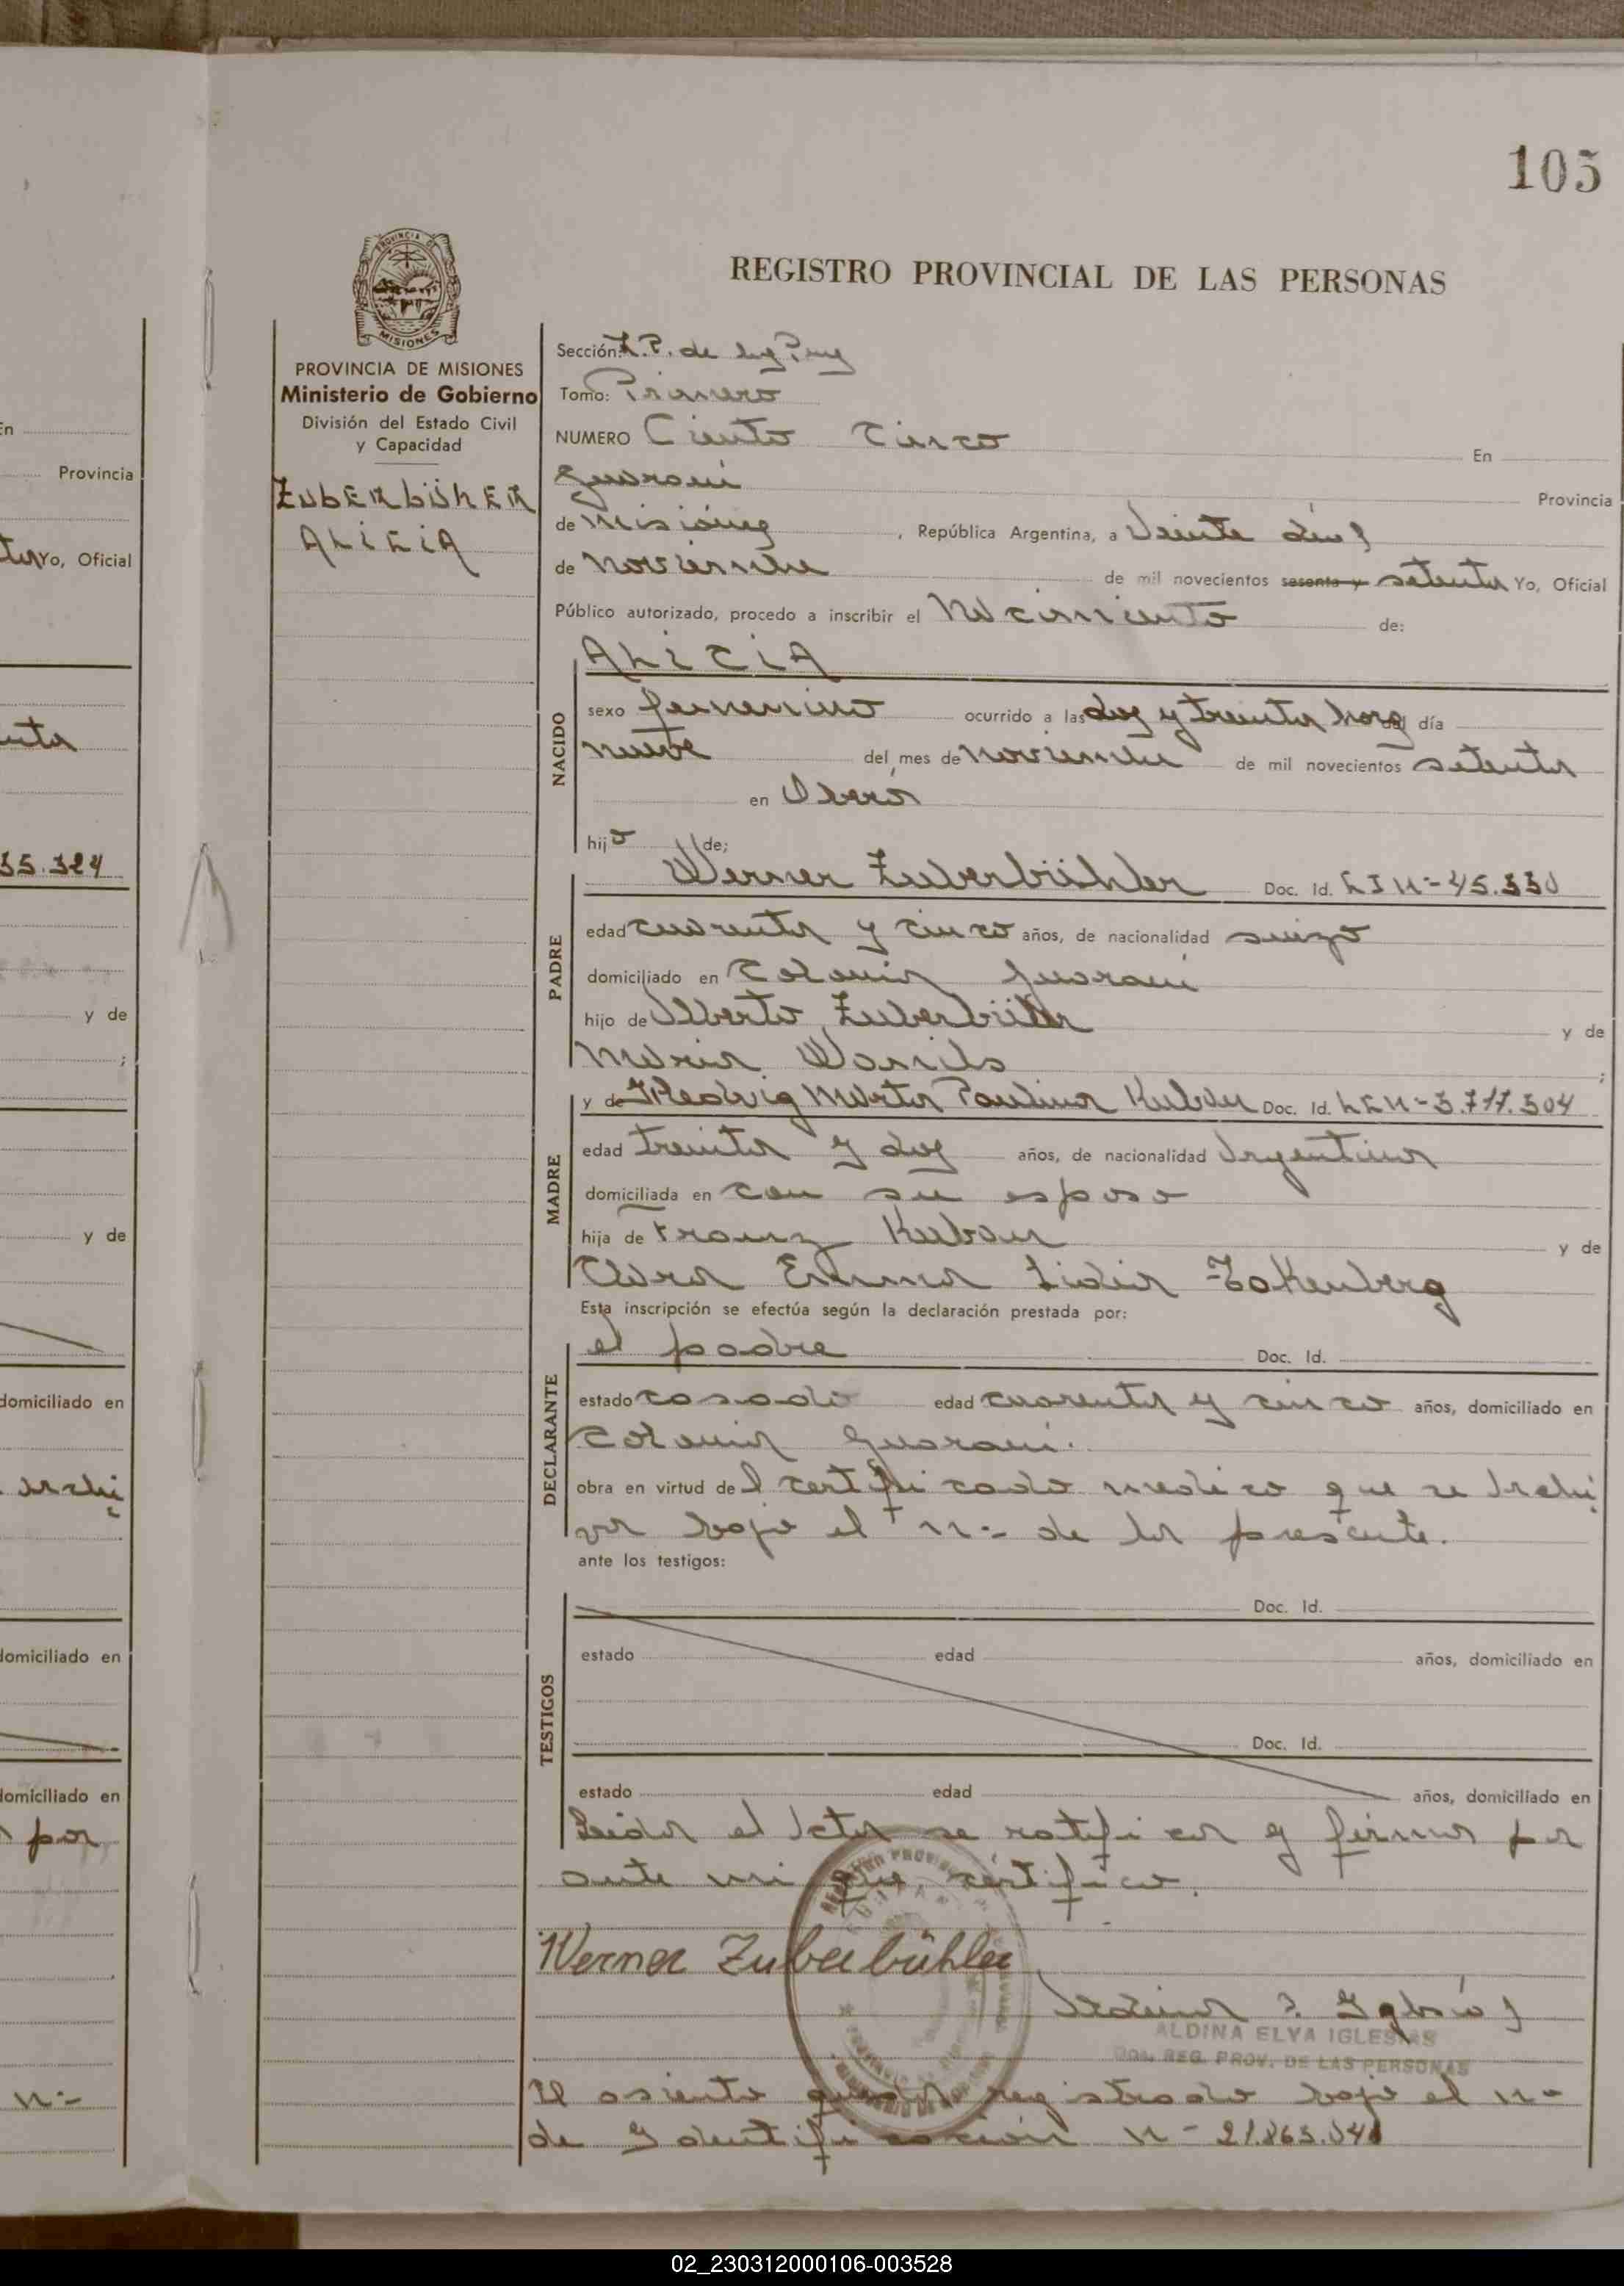 105
PROVINCIA DE
MISIONES
REGISTRO PROVINCIAL DE LAS PERSONAS
PROVINCIA DE MISIONES
Ministerio de Gobierno
División del Estado Civil
y Capacidad
ZUBERBÜHLER
ALICIA
Sección:
Tomo: Primero
NUMERO Ciento Cinco En
Guarani Provincia
de Misiones, República Argentina, a Veinte
de Noviembre de mil novecientos sesenta y setenta Yo, Oficial
Público autorizado, procedo a inscribir el Nacimiento de:
NACIDO
ALICIA
sexo femenino ocurrido a las dos y treinta horas del día
nueve del mes de noviembre de mil novecientos setenta
en Oberá
hijo de;
PADRE
Werner Zuberbühler Doc. Id. 45.330
edad cuarenta y cinco años, de nacionalidad suizo
domiciliado en Colonia Guarani
hijo de Alberto Zuberbühler y de
Maria ;
MADRE
y de Hedwig Marta Paulina Kuban Doc. Id. 3.717.504
edad treinta y dos años, de nacionalidad Argentina
domiciliada en con su esposo
hija de Franz Kuban y de
Clara Emma Lidia
Esta inscripción se efectúa según la declaración prestada por:
DECLARANTE
el padre Doc. Id.
estado casado edad cuarenta y cinco años, domiciliado en
Colonia Guarani.
obra en virtud del certificado medico que se archi
va bajo el n:- de la presente.
ante los testigos:
TESTIGOS
Doc. Id.
estado edad años, domiciliado en
Doc. Id.
estado edad años, domiciliado en
Leida el Acta se ratifica y firma por
ante mi que certifico.
Werner Zuberbühler
ALDINA ELVA IGLESIAS
REG. PROV. DE LAS PERSONAS
El asiento queda registrado bajo el n-
de Identificación n- 21.863.041
En
Provincia
Yo, Oficial
35.324
y de
;
y de
domiciliado en
archi
domiciliado en
domiciliado en
por
n:-
02_230312000106-003528